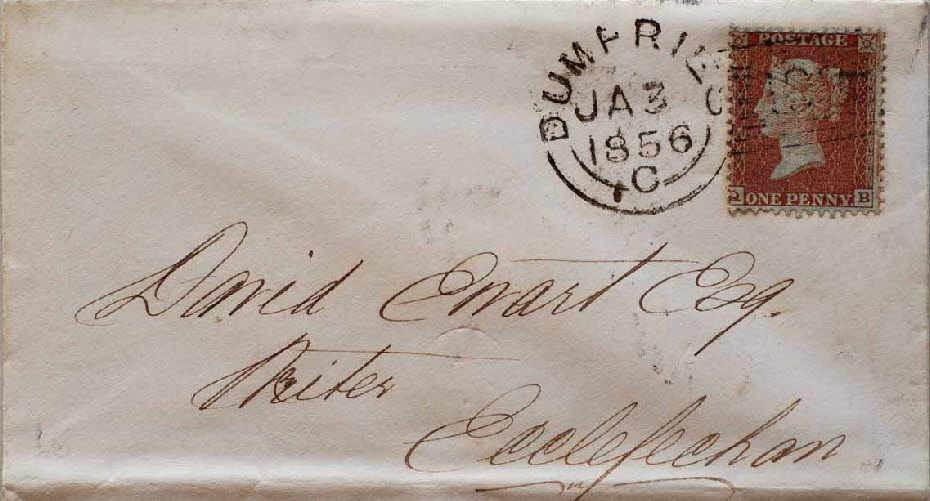 DUMFRIES
JA 3
1856
C
POSTAGE
ONE PENNY
B
David Ewart Esq.
Writer
Ecclefechan